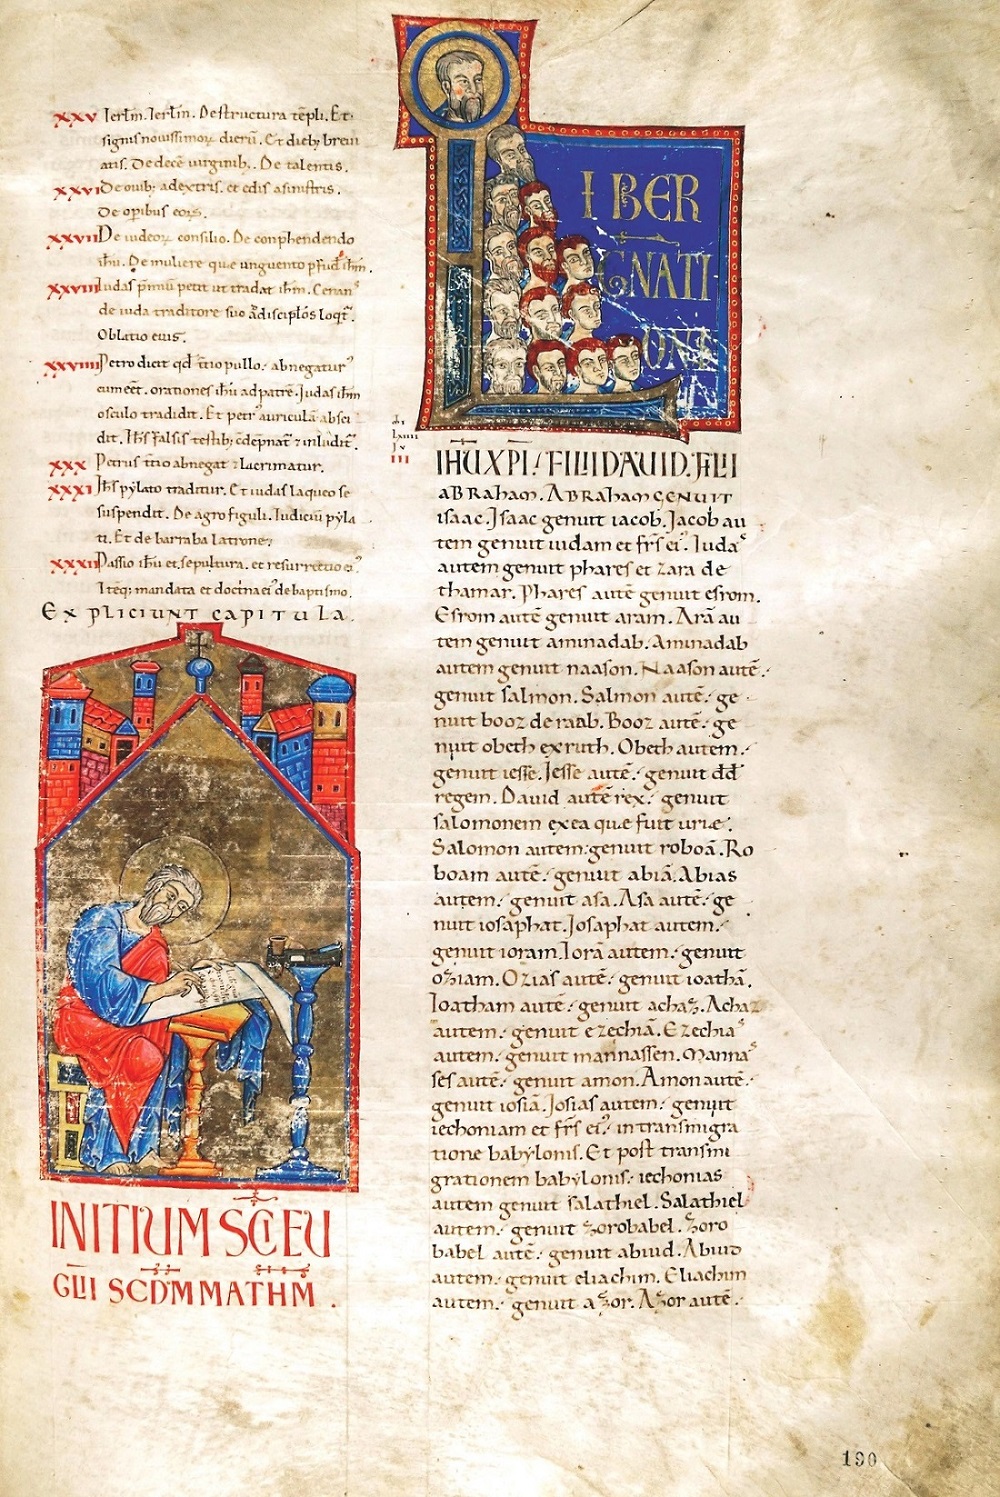 XXV Ierłm. Ierłm. Destructura tēpli. Et
signis nouissimoꝝ dierū. Et dieb; breui
atis. De decē uirginib;. De talentis.
XXVI De ouib; adextris. et edis asinistris.
De opibus eoꝝ.
XXVII De iudeoꝝ consilio. De conphendendo
ihū. De muliere que unguento pfud ihm.
XXVIII Iudas pmū petit ut tradat ihm. Cenanꝰ
de iuda traditore suo ad discipłos loqt.
Oblatio eius.
XXVIIII Petro dicit qd tio pullo: abnegatur
eum eēt. orationes ihū ad patrē. Judas ihm
osculo tradidit. Et petrꝰ auriculā absci
dit. Ihs falsis testib; cōdepnat: inludit.
XXX Petrus tio abnegat: lacrimatur.
XXXI Ihs pylato traditur. Et iudas laqueo se
suspendit. De agro figuli. Iudiciū pyla
ti. Et de barraba latrone.
XXXII Passio ihū et sepultura. et resurrectio eiꝰ
Iteq; mandata et doctna eiꝰ de baptismo.
EXPLICIUNT CAPITULA.
INITIUM SCI EU
GLII SCDM MATHM.
LIBER
GNATI
ONI
IHU XPI. FILII DAUID. FILII
ABRAHAM. ABRAHAM GENUIT
isaac. Isaac genuit iacob. Jacob au
tem genuit iudam et frs eiꝰ. Iudaꝰ
autem genuit phares et zara de
thamar. Phares autē genuit esrom.
Esrom autē genuit aram. Arā au
tem genuit aminadab. Aminadab
autem genuit naason. Naason autē
genuit salmon. Salmon autē ge
nuit booz de raab. Booz autē ge
nuit obeth ex ruth. Obeth autem
genuit iesse. Jesse autē genuit dd
regem. Dauid autē rex genuit
salomonem ex ea que fuit urie.
Salomon autem genuit roboā. Ro
boam autē genuit abiā. Abias
autem genuit asa. Asa autē ge
nuit iosaphat. Josaphat autem
genuit ioram. Iorā autem genuit
oziam. Ozias autē genuit ioathā.
Ioatham autē genuit achaz. Achaz
autem genuit ezechiā. Ezechiaꝰ
autem genuit mannassen. Mannaꝰ
ses autē genuit amon. Amon autē
genuit iosiā. Josias autem genuit
iechoniam et frs eiꝰ in transmigra
tione babylonis. Et post transmi
grationem babylonis iechonias
autem genuit salathiel. Salathiel
autem genuit zorobabel. Zoro
babel autē genuit abiud. Abiud
autem genuit eliachim. Eliachim
autem genuit azor. Azor autē
190